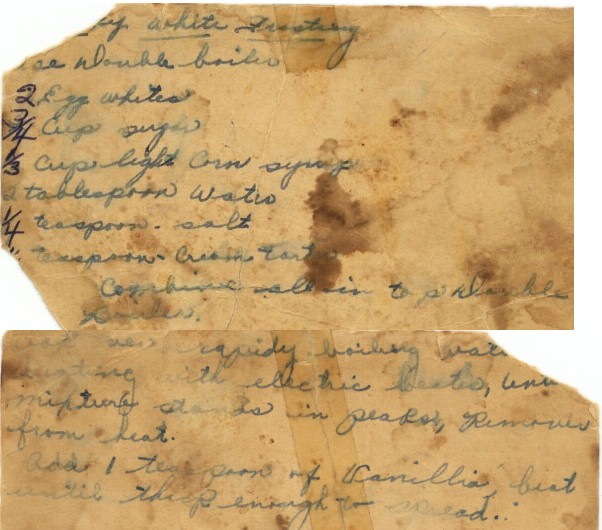 White Frosting
Double boiler
2 Egg whites
3/4 Cup sugar
1/3 Cup light Corn syrup
tablespoon Water
1/4 teaspoon - salt
" teaspoon - Cream Tarta
Combine all in top Double
Boiler.
over rapidy boiling wat
with electric beater, 
mixture stands in peaks, Remove
from heat.
Add 1 teaspoon of Vanillia, beat
until thick enough to spread.